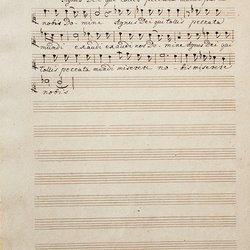 Agnus Dei qui tollis peccata
nobis Domine Agnus Dei qui tollis peccata
mundi exaudi exaudi nos Domine Agnus Dei qui
tollis peccata mundi miserere nobis miserere
nobis